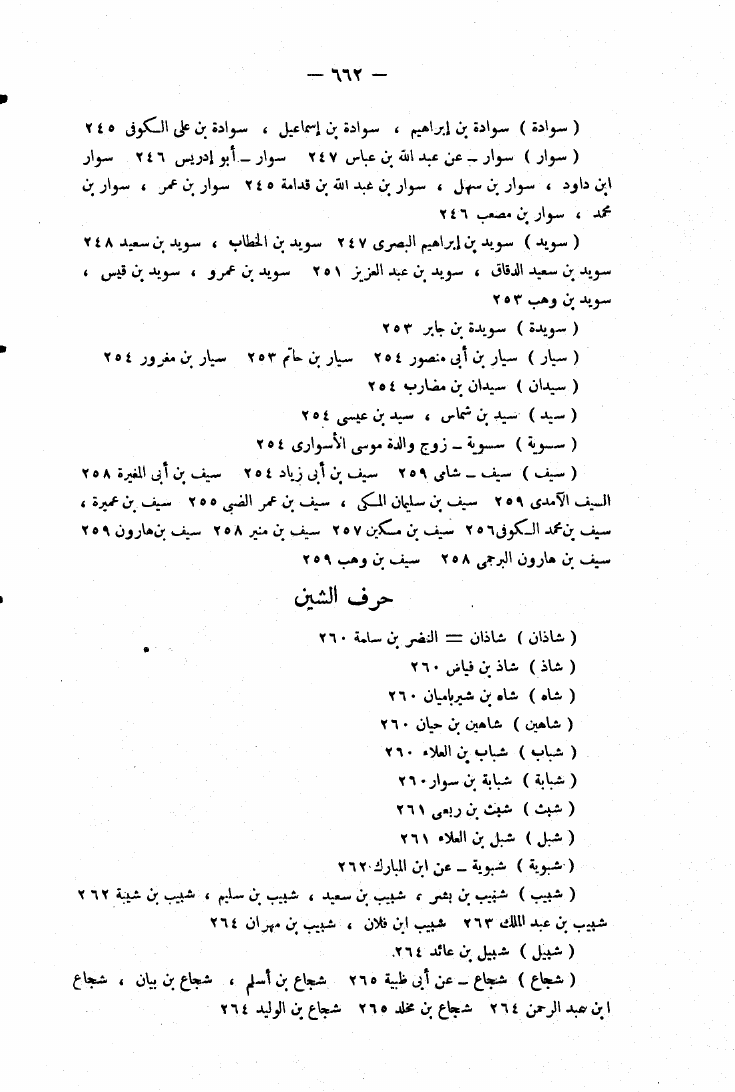 — ٦٦٢ —
( سوادة ) سوادة بن إبراهيم ، سوادة بن إسماعيل ، سوادة بن على الكوفى ٢٤٥
( سوار ) سوار – عن عبد الله بن عباس ٢٤٧ سوار – أبو إدريس ٢٤٦ سوار
ابن داود ، سوار بن سهل ، سوار بن عبد الله بن قدامة ٢٤٥ سوار بن عمر ، سوار بن
محمد ، سوار بن مصعب ٢٤٦
( سويد ) سويد بن إبراهيم البصرى ٢٤٧ سويد بن الخطاب ، سويد بن سعيد ٢٤٨
سويد بن سعيد الدقاق ، سويد بن عبد العزيز ٢٥١ سويد بن عمرو ، سويد بن قيس ،
سويد بن وهب ٢٥٣
( سويدة ) سويدة بن جابر ٢٥٣
( سيار ) سيار بن أبى منصور ٢٥٤ سيار بن حاتم ٢٥٣ سيار بن مغرور ٢٥٤
( سيدان ) سيدان بن مضارب ٢٥٤
( سيد ) سيد بن شماس ، سيد بن عيسى ٢٥٤
( سسوية ) سسوية – زوج والدة موسى الأسوارى ٢٥٤
( سيف ) سيف – شامى ٢٥٩ سيف بن أبى زياد ٢٥٤ سيف بن أبى المغيرة ٢٥٨
السيف الآمدى ٢٥٩ سيف بن سليمان المكى ، سيف بن عمر الضبى ٢٥٥ سيف بن عميرة ،
سيف بن محمد الكوفى ٢٥٦ سيف بن مسكين ٢٥٧ سيف بن منير ٢٥٨ سيف بن هارون ٢٥٩
سيف بن هارون البرجمى ٢٥٨ سيف بن وهب ٢٥٩
حرف الشين
( شاذان ) شاذان = النضر بن سلمة ٢٦٠
( شاذ ) شاذ بن فياض ٢٦٠
( شاه ) شاه بن شيرباميان ٢٦٠
( شاهين ) شاهين بن حيان ٢٦٠
( شباب ) شباب بن العلاء ٢٦٠
( شبابة ) شبابة بن سوار ٢٦٠
( شبث ) شبث بن ربعى ٢٦١
( شبل ) شبل بن العلاء ٢٦١
( شبوية ) شبوية – عن ابن المبارك ٢٦٢
( شبيب ) شبيب بن بشر ، شبيب بن سعيد ، شبيب بن سليم ، شبيب بن شيبة ٢٦٢
شبيب بن عبد الملك ٢٦٣ شبيب ابن فلان ، شبيب بن مهران ٢٦٤
( شبيل ) شبيل بن عائد ٢٦٤
( شجاع ) شجاع – عن أبى طيبة ٢٦٥ شجاع بن أسلم ، شجاع بن بيان ، شجاع
ابن عبد الرحمن ٢٦٤ شجاع بن مخلد ٢٦٥ شجاع بن الوليد ٢٦٤